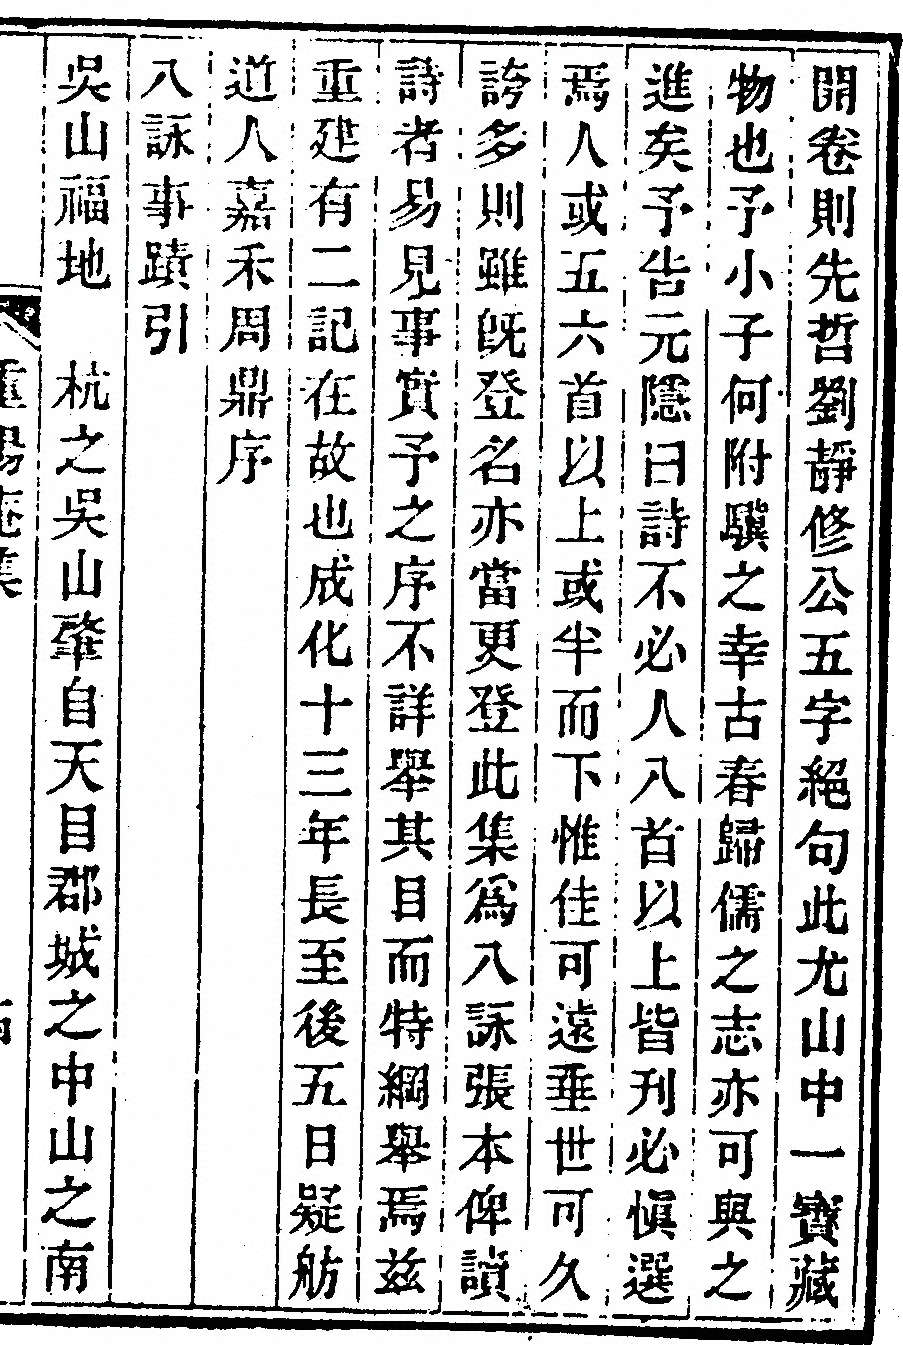 開卷則先哲劉靜修公五字絕句此尤山中一寶藏
物也予小子何附驥之幸古春歸儒之志亦可與之
進矣予告元隱曰詩不必人八首以上皆刋必愼選
焉人或五六首以上或半而下惟佳可遠垂世可久
誇多則雖旣登名亦當更登此集爲八詠張本俾讀
詩者易見事實予之序不詳舉其目而特綱舉焉兹
重建有二記在故也成化十三年長至後五日疑舫
道人嘉禾周鼎序
八詠事蹟引
吳山福地　杭之吳山肇自天目郡城之中山之南
重陽庵集